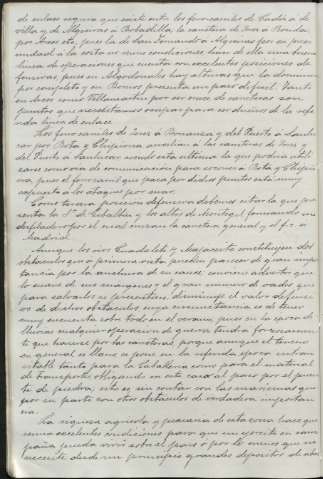 de enlace segura que existe entre los ferrocarriles de Cadiz á Se
villa y de Algeciras á Bobadilla, la carretera de Jerez á Ronda
por Arcos etc, pues la de San Fernando á Algeciras por su proxi
midad á la costa no reune condiciones, hacen de ella una buena
linea de operaciones que cuenta con excelentes posiciones de
fensivas, pues en Algodonales hay alturas que la dominan
por completo y en Bornos presenta un paso dificil. Tanto
en Arcos como Villamartin por ser cruce de carreteras son
puntos que necesitamos ocupar para ser dueños de la refe
rida linea de enlace.
Los ferrocarriles de Jerez á Bonanza y del Puerto á Sanlu
car por Rota y Chipiona, auxilian á las carreteras de Jerez y
del Puerto á Sanlucar siendo esta ultima la que podria utili
zarse como via de comunicacion para socorrer á Rota y Chipio
na, pues el ferrocarril que pasa por dichos puntos está muy
expuesto á los ataques por mar.
Como tercera posicion defensiva debemos citar la que pre
senta la Sª de Gibalbin y los altos de Montegil formando un
desfiladero por el cual cruzan la carretera general y el f.c. á
Madrid.
Aunque los rios Guadalete y Majaceite constituyen dos
obstaculos que á primera vista pueden parecer de gran impor
tancia por la anchura de su cauce, conviene advertir que
lo suave de sus margenes y el gran numero de vados que
para salvarlos se presentan, disminuye el valor defensi
vo de dichos obstaculos cuya circunstancia es de tener
muy en cuenta sobre todo en el verano, pues en la epoca de
lluvias cualquier operacion de guerra tendrá forzosamen
te que hacerse por las carreteras porque aunque el terreno
en general es llano se pone en la referida epoca intran
sitable tanto para la Caballeria como para el material
de transportes obligando en este caso al paso por el puen
te de piedra, esto es, sin contar con las marismas que
por su parte son otros obstaculos de verdadera importan
cia.
La riqueza agricola y pecuaria de esta zona hace que
reuna excelentes condiciones para que un ejercito en cam
paña pueda vivir sobre el pais ó por lo menos que no
necesite desde un principio grandes depositos de abas